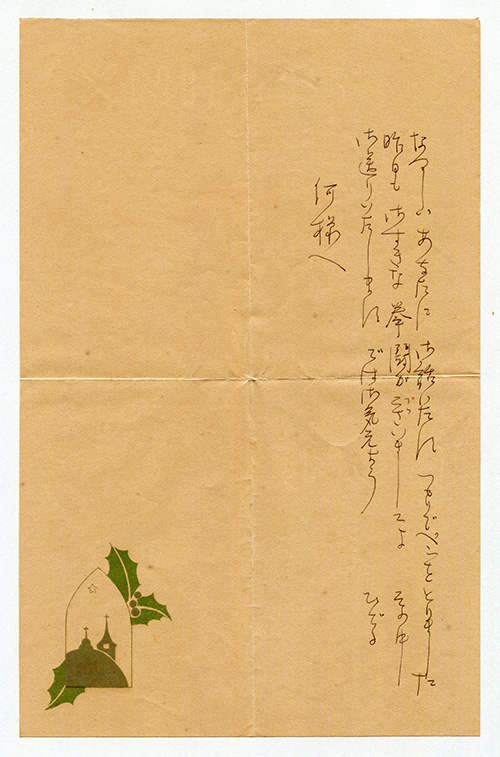 なつかしい あなたに 御話いたす つもりでペンをとりました
昨日も おすきな 拳闘が ございましてよ その中
お送りいたします では お気元よう ひでる
何様へ